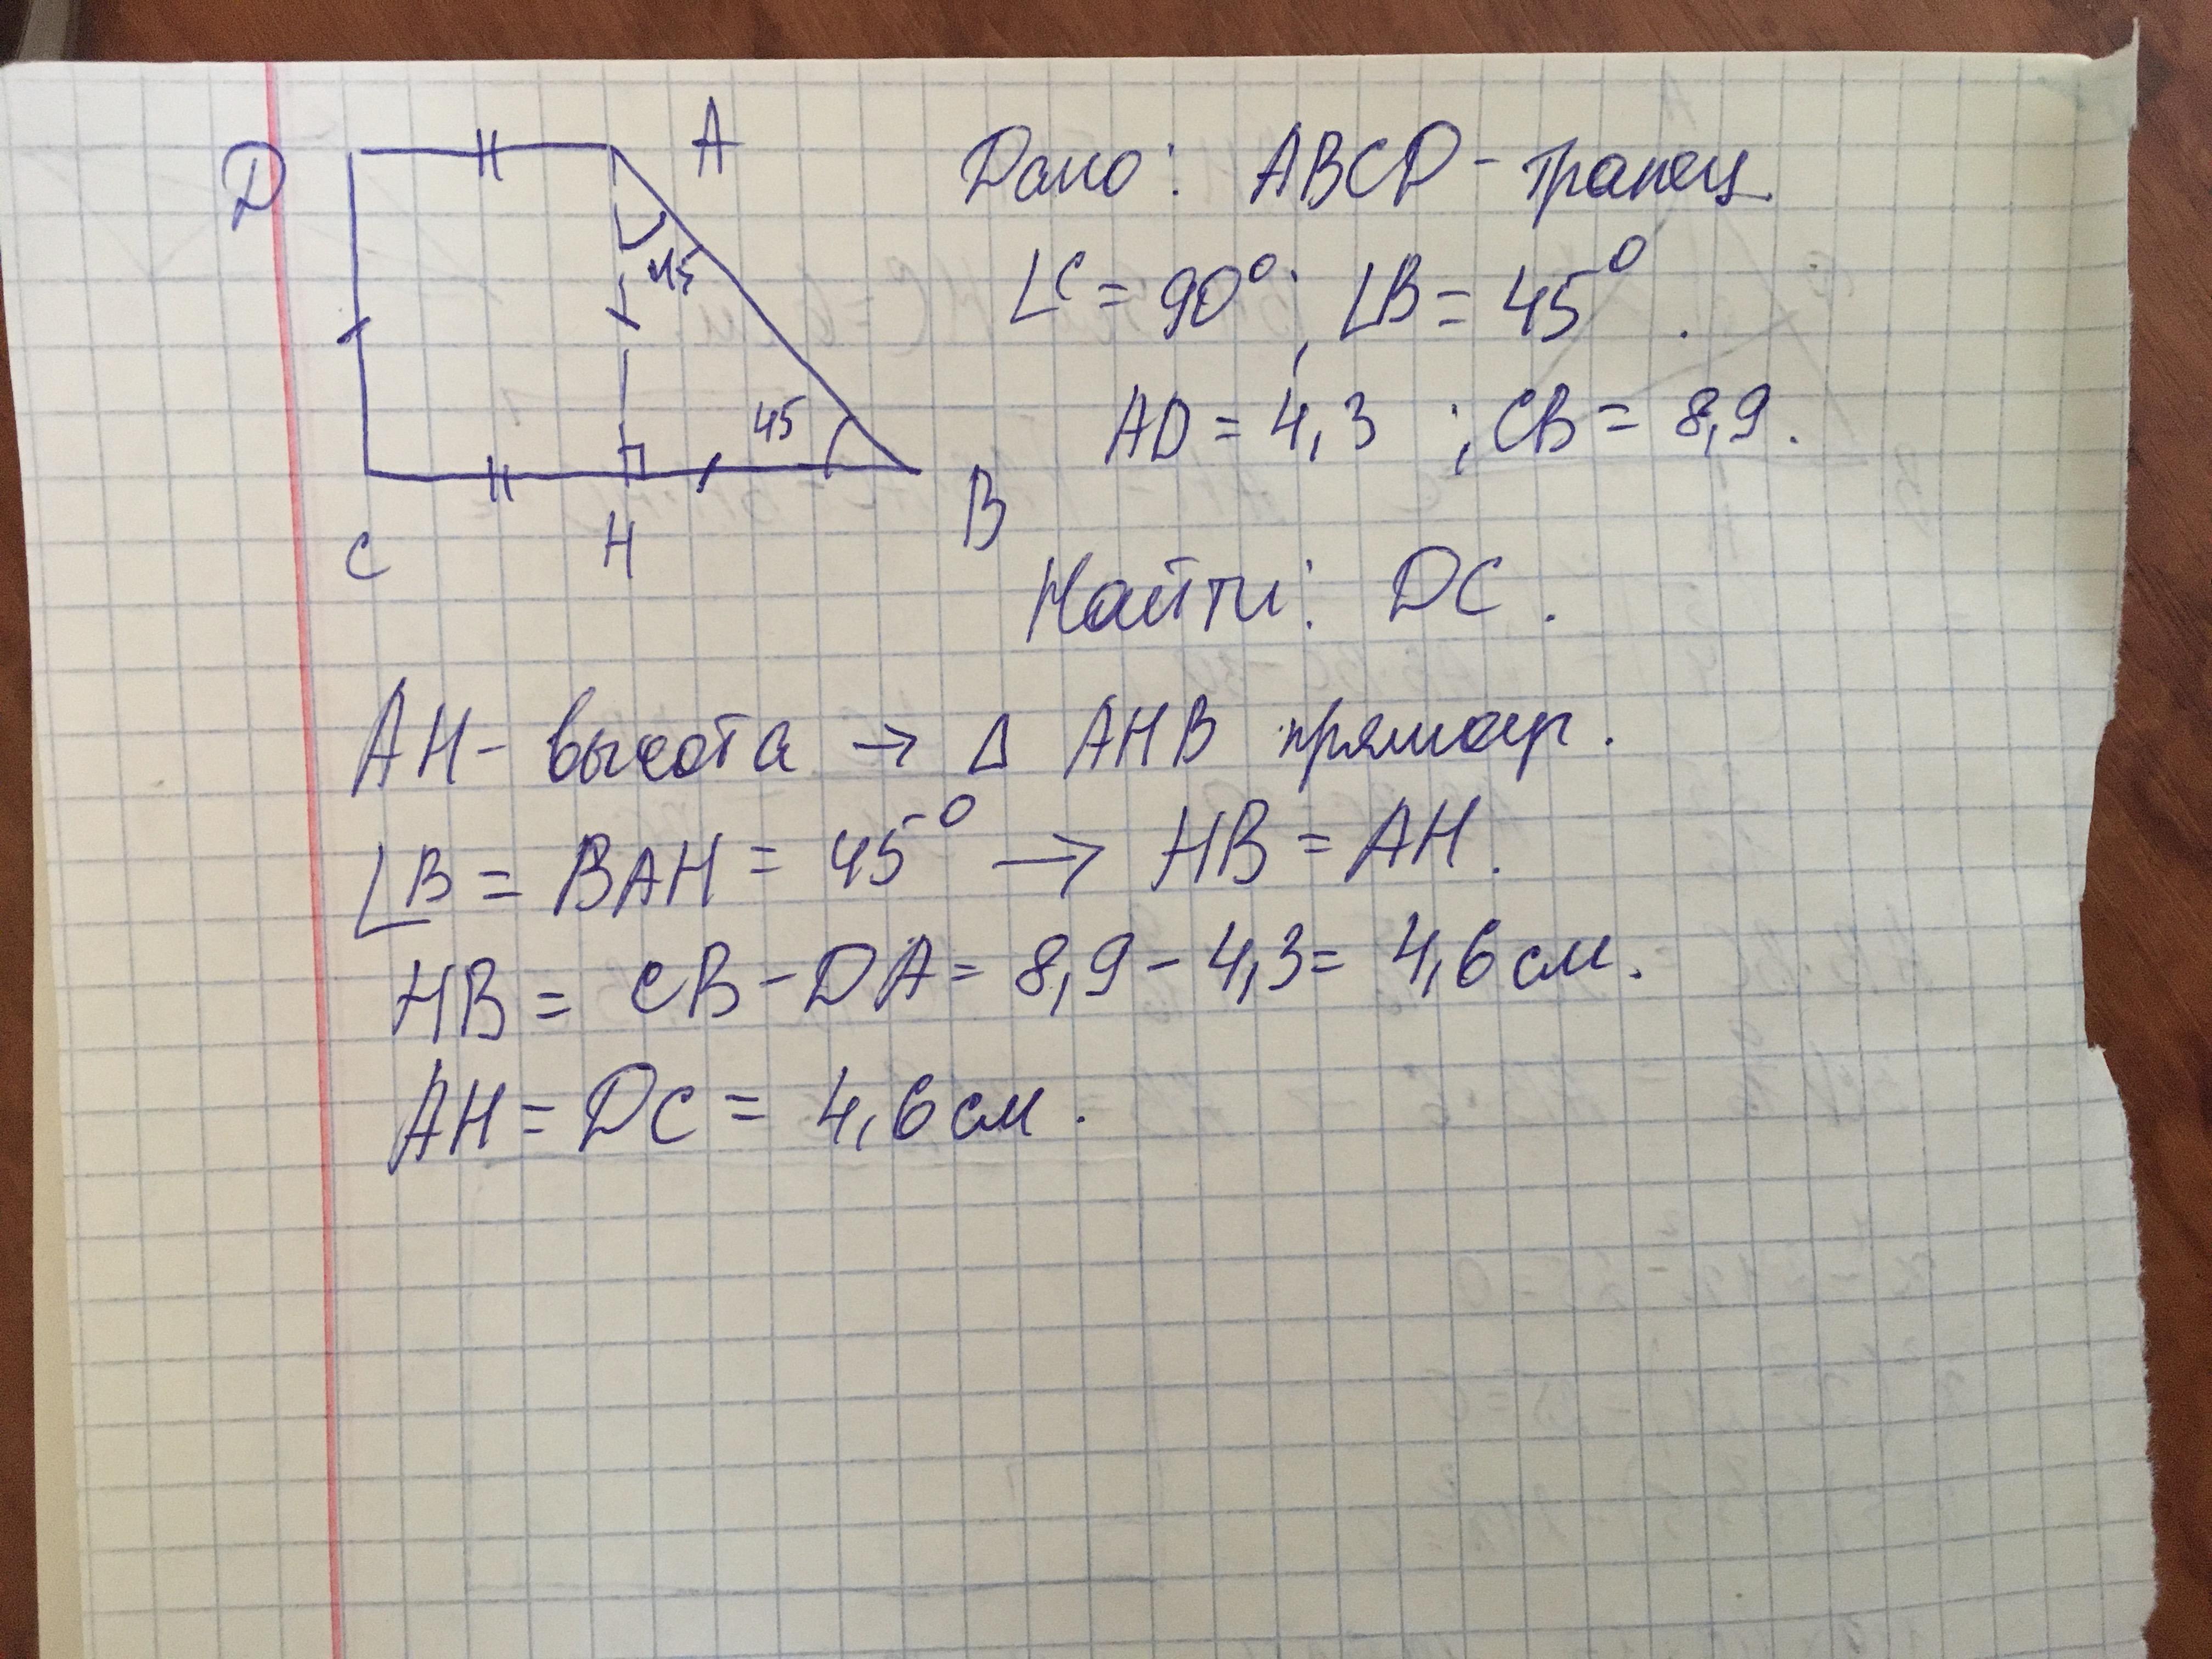 D
A
45
45
C
H
B
Дано: ABCD - трапец.
∠C = 90°; ∠B = 45°.
AD = 4,3 ; CB = 8,9.
Найти: DC.
AH - высота → Δ AHB прямоуг.
∠B = BAH = 45° → HB = AH.
HB = CB - DA = 8,9 - 4,3 = 4,6 см.
AH = DC = 4,6 см.